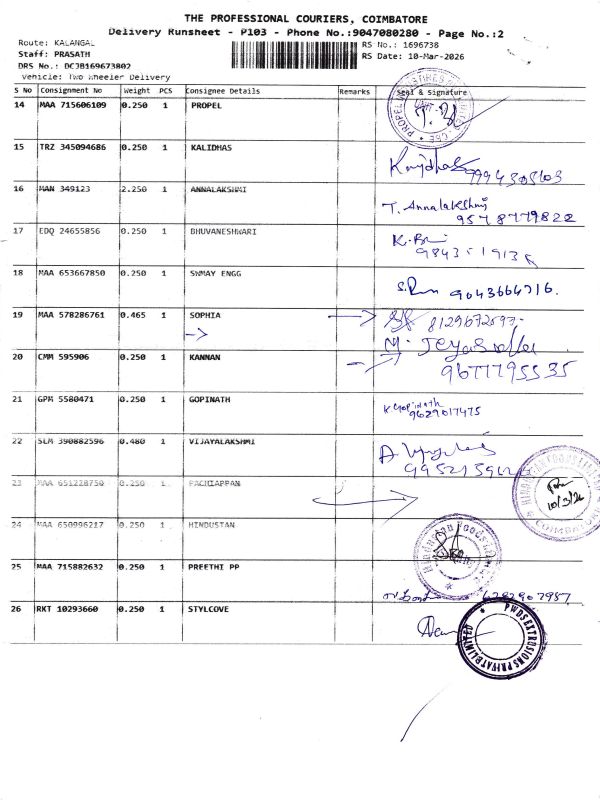 THE PROFESSIONAL COURIERS, COIMBATORE
Delivery Runsheet - P103 - Phone No.:9047080280 - Page No.:2
Route: KALANGAL
RS No.: 1696738
Staff: PRASATH
RS Date: 10-Mar-2026
DRS No.: DCJB169673802
Vehicle: Two Wheeler Delivery
S No Consignment No Weight PCS Consignee Details Remarks Seal & Signature
14 MAA 715606109 0.250 1 PROPEL
15 TRZ 345094686 0.250 1 KALIDHAS
9994305103
16 MAN 349123 2.250 1 ANNALAKSHMI
T. Annalakshmi
9578779822
17 EDQ 24655856 0.250 1 BHUVANESHWARI
18 MAA 653667850 0.250 1 SWMAY ENGG
9043664716.
19 MAA 578286761 0.465 1 SOPHIA
20 CMM 595906 0.250 1 KANNAN
9677795535
21 GPM 5580471 0.250 1 GOPINATH
K Gopinath
9629017475
22 SLM 390882596 0.480 1 VIJAYALAKSHMI
23 MAA 651228750 0.250 1 PACHIAPPAN
10/3/26
24 MAA 650996217 0.250 1 HINDUSTAN
25 MAA 715882632 0.250 1 PREETHI PP
26 RKT 10293660 0.250 1 STYLCOVE
PWDS EXTROSIONS PRIVATE LIMITED